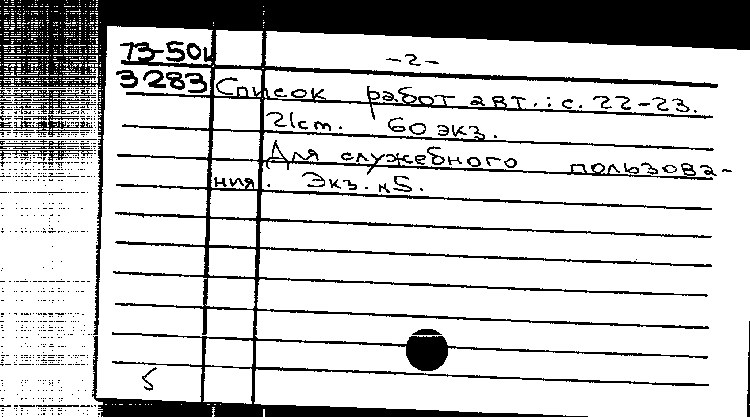 73-501
-2-
3283 Список работ авт.: с. 22-23.
21 ст. 60 экз.
Для служебного пользова-
ния. Экз. №5.
5